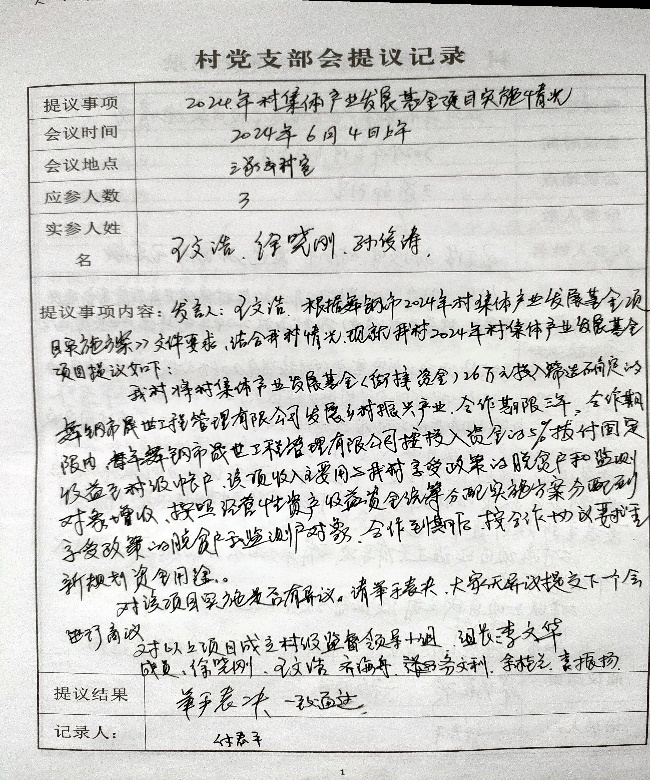 村党支部会提议记录
提议事项 2024年村集体产业发展基金项目实施情况
会议时间 2024年6月4日上午
会议地点 村室
应参人数 3
实参人姓名 王文浩、徐晓刚、孙俊涛、
提议事项内容：发言人：王文浩、根据舞钢市2024年村集体产业发展基金项
目实施方案》文件要求，结合我村情况，现就我村2024年村集体产业发展基金
项目提议如下：
我村将村集体产业发展基金（衔接资金）26万元投入确定的
舞钢市晟世工程管理有限公司发展乡村振兴产业，合作期限三年，合作期
限内，每年舞钢市晟世工程管理有限公司按投入资金的5%拨付固定
收益至村级帐户，该项收入主要用与我村享受政策的脱贫户和监测
对象增收，按照经营性资产收益资金统筹分配实施方案分配到
享受政策的脱贫户和监测户对象，合作到期后，按合作协议要求重
新规划资金用途。
对该项目实施是否有异议。请举手表决，大家无异议提交下一个会
进行商议
对以上项目成立村级监督领导小组，组长：李文华
成员、徐晓刚、王文浩、文利、袁振扬
提议结果 举手表决、一致通过
记录人：
1